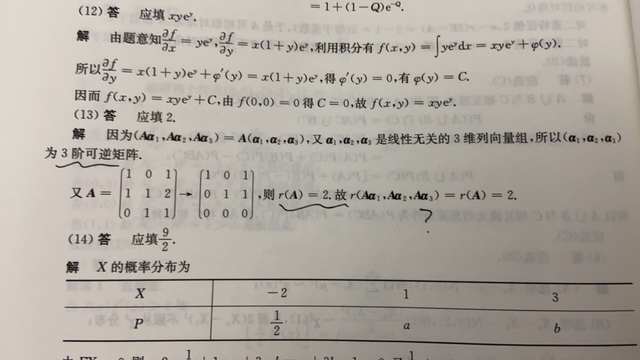 = 1+(1−Q)e^{-Q}.
(12) 答 应填 xye^y.
解 由题意知 ∂f/∂x = ye^y, ∂f/∂y = x(1+y)e^y, 利用积分有 f(x,y) = ∫ye^y dx = xye^y + φ(y).
所以 ∂f/∂y = x(1+y)e^y + φ′(y) = x(1+y)e^y, 得 φ′(y) = 0, 有 φ(y) = C.
因而 f(x,y) = xye^y + C, 由 f(0,0) = 0 得 C = 0, 故 f(x,y) = xye^y.
(13) 答 应填 2.
解 因为 (Aα₁,Aα₂,Aα₃) = A(α₁,α₂,α₃), 又 α₁,α₂,α₃ 是线性无关的 3 维列向量组, 所以 (α₁,α₂,α₃)
为 3 阶可逆矩阵.
又 A = [1 0 1; 1 1 2; 0 1 1] → [1 0 1; 0 1 1; 0 0 0], 则 r(A) = 2. 故 r(Aα₁,Aα₂,Aα₃) = r(A) = 2.
?
(14) 答 应填 9/2.
解 X 的概率分布为
X −2 1 3
P 1/2 a b